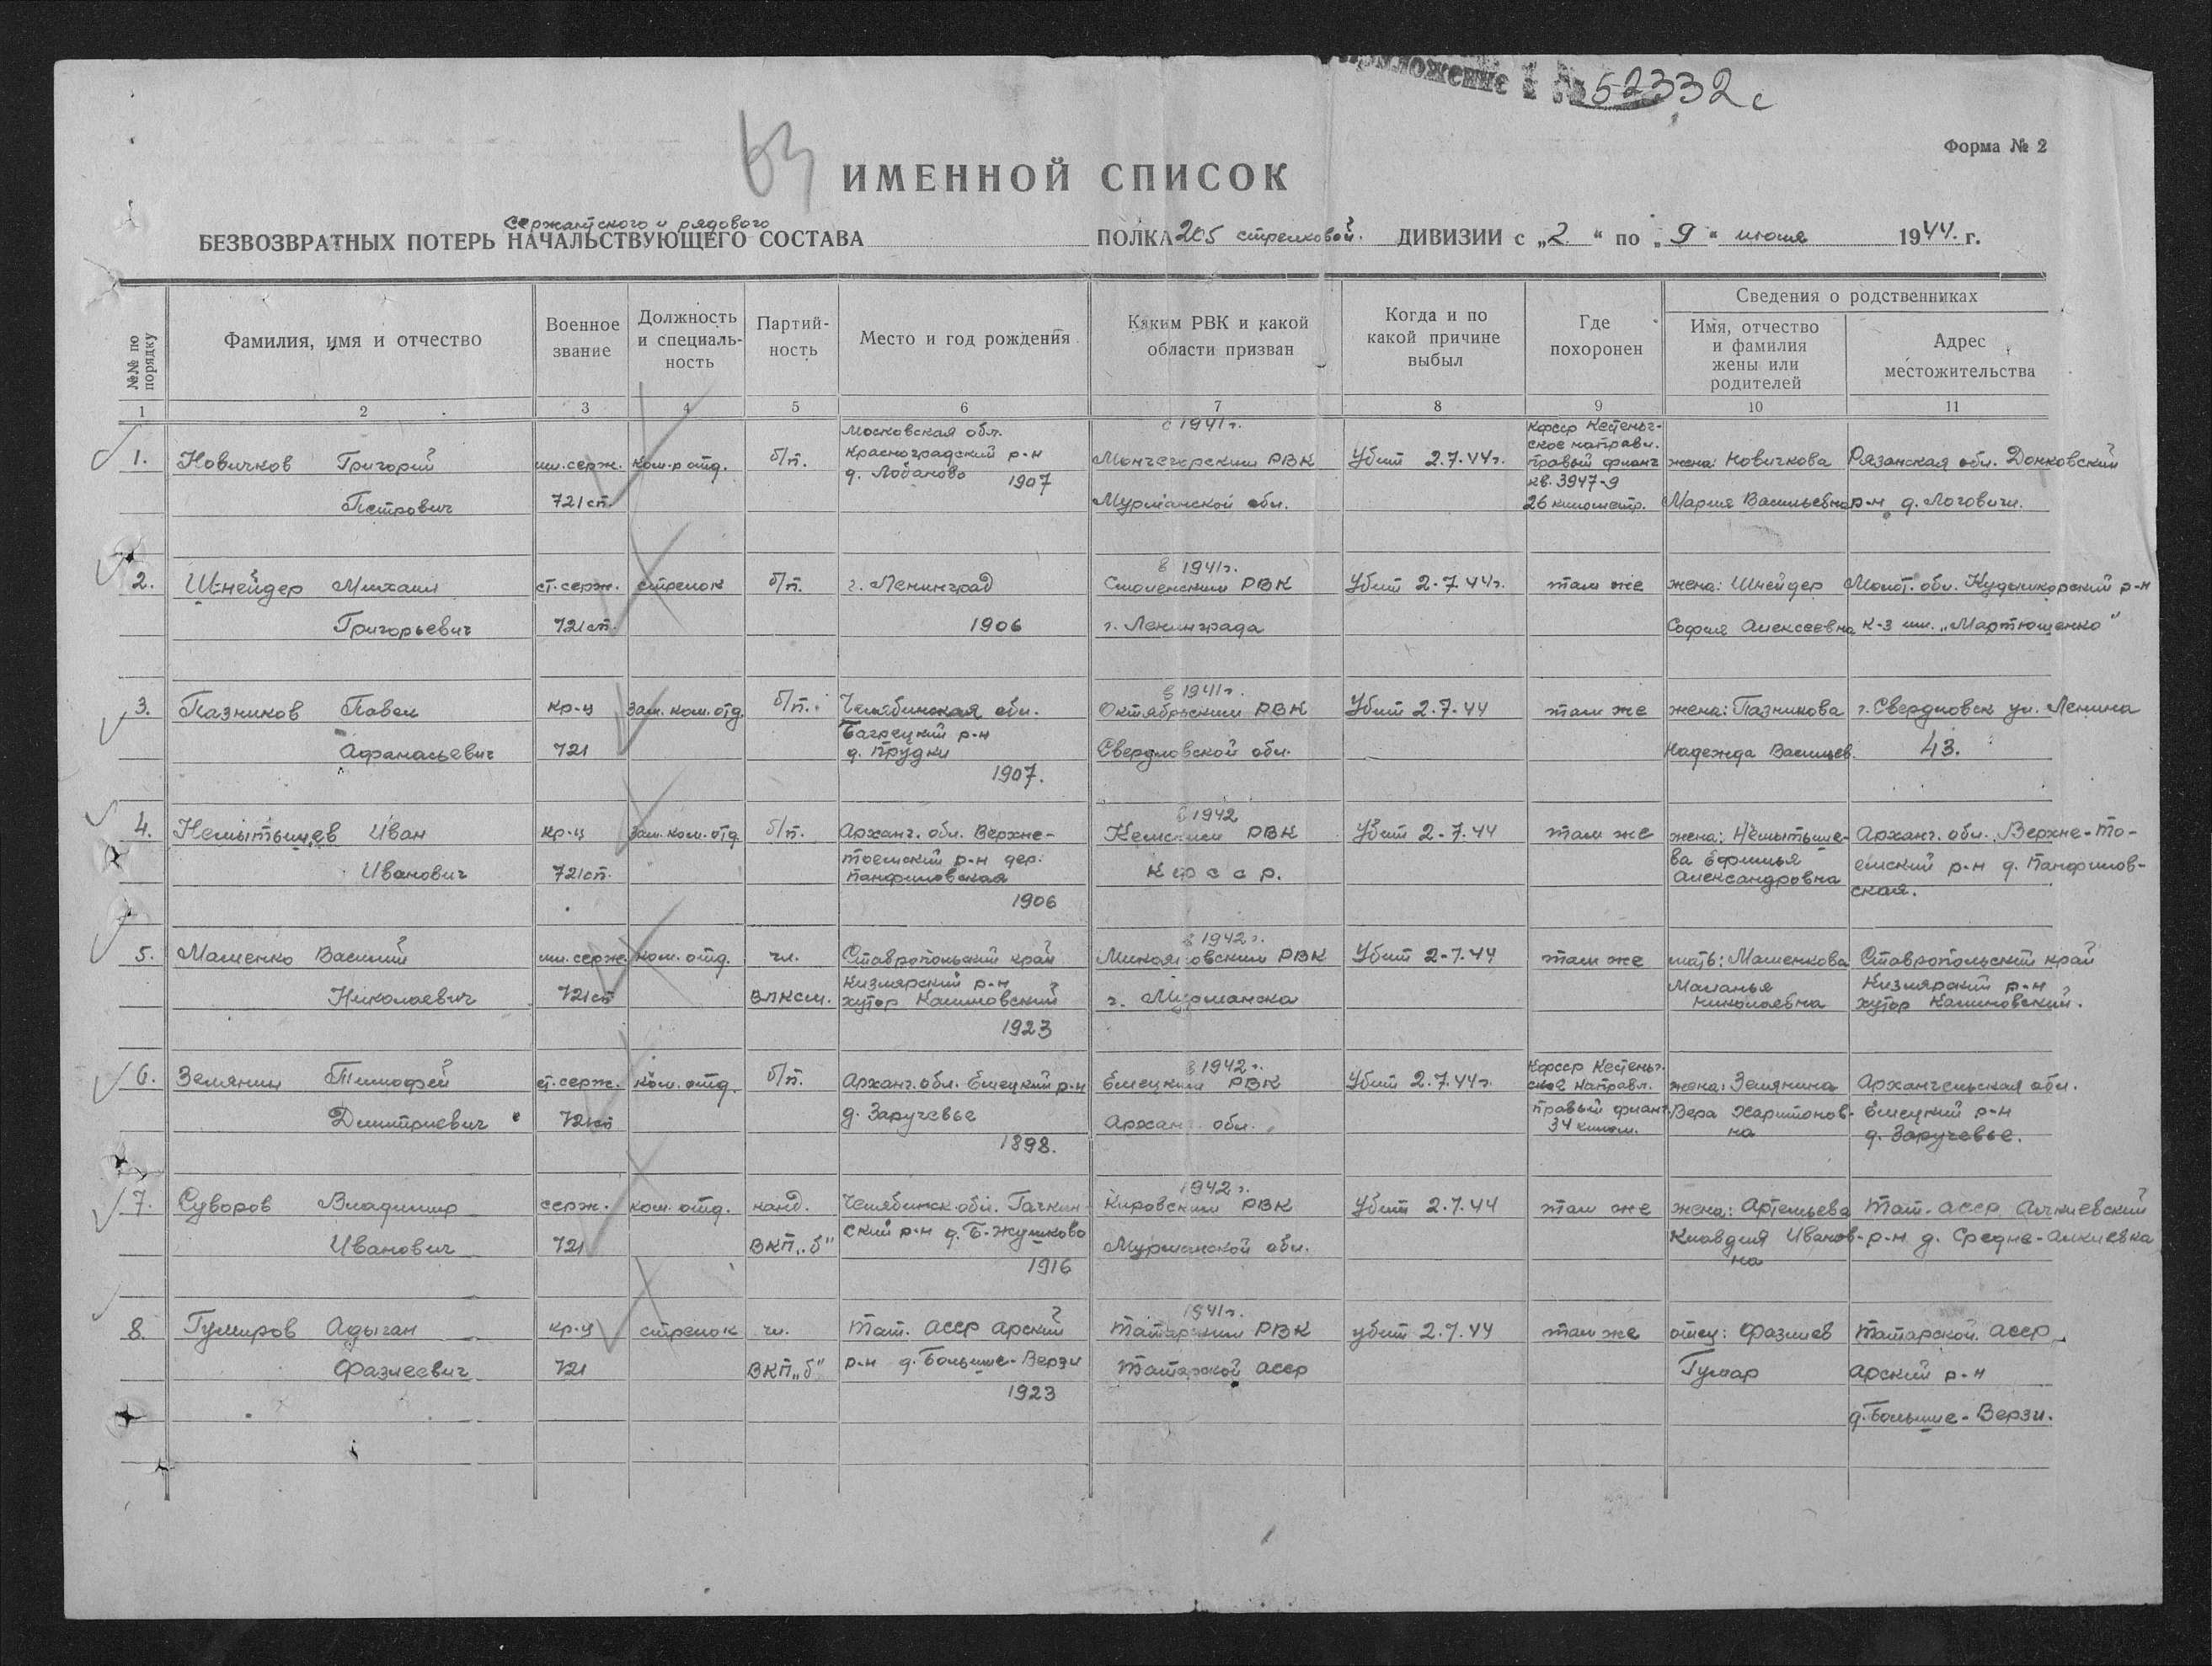 Приложение 1 № 52332 с
63
Форма № 2
ИМЕННОЙ СПИСОК
Сержантского и рядового
БЕЗВОЗВРАТНЫХ ПОТЕРЬ НАЧАЛЬСТВУЮЩЕГО СОСТАВА ПОЛКА 205 стрелковой ДИВИЗИИ с „2“ по „9“ июля 1944. г.
№№ по порядку
Фамилия, имя и отчество
Военное звание
Должность и специаль-ность
Партий-ность
Место и год рождения
Каким РВК и какой области призван
Когда и по какой причине выбыл
Где похоронен
Сведения о родственниках
Имя, отчество и фамилия жены или родителей
Адрес местожительства
1 2 3 4 5 6 7 8 9 10 11
Московская обл. с 1941г. Кфсср Кестеньг-
ское направл.
1. Новичков Григорий мл.серж. ком-р отд. б/п. Красноградский р-н Мончегорским РВК Убит 2.7.44г. правый фланг жена: Новичкова Рязанская обл. Донковский
д. Лобаново 1907 кв. 3947-9
Петрович 721сп. Мурманской обл. 26 километр. Мария Васильевна р-н д. Логовичи.
в 1941г.
2. Шнейдер Михаил ст.серж. стрелок б/п. г. Ленинград Смоленским РВК Убит 2-7.44г. там же жена: Шнейдер Молот. обл. Кудымкорский р-н
Григорьевич 721сп. 1906 г. Ленинграда София Алексеевна к-з им. „Мартюшенко“
в 1941г.
3. Пазников Павел кр-ц зам. ком. отд. б/п. Челябинская обл. Октябрьским РВК Убит 2.7.44 там же жена: Пазникова г. Свердловск ул. Ленина
Багрецкий р-н
Афанасьевич 721 д. Прудки Свердловской обл. Надежда Васильев. 43.
1907.
в 1942
4. Немытышев Иван кр-ц зам. ком. отд. б/п. Арханг. обл. Верхне- Кемским РВК Убит 2-7.44 там же жена: Немытыше- Арханг. обл. Верхне-То-
Иванович 721сп. тоемский р-н дер. Кфсср. ва Ефимья емский р-н д. Панфилов-
Панфиловская Александровна ская.
1906
в 1942г.
5. Маленко Василий мл.серж. ком. отд. чл. Ставропольский край Микояновским РВК Убит 2-7.44 там же мать: Маленкова Ставропольский край
Кизлярский р-н Маланья Кизлярский р-н
Николаевич 721сп ВЛКСМ. хутор Калиновский г. Мурманска Николаевна хутор Калиновский.
1923
в 1942г. Кфсср Кестеньг.
6. Земянин Тимофей ст.серж. ком. отд. б/п. Арханг. обл. Емецкий р-н Емецким РВК Убит 2.7.44г. ское направл. жена: Земянина Архангельская обл.
Дмитриевич 721сп д. Заручевье Арханг. обл. правый фланг Вера Харитонов- Емецкий р-н
1898. 34 килом. на д. Заручевье.
1942г.
7. Суворов Владимир серж. ком. отд. канд. Челябинск обл. Галкин- Кировским РВК Убит 2.7.44 там же жена: Артемьева Тат. АССР Алкиевский
Иванович 721 ВКП„б“ ский р-н д. Б-Жуликово Мурманской обл. Клавдия Иванов- р-н д. Средне-Алкиевка
1916 на
1941г.
8. Гумиров Адыган кр-ц стрелок чл. Тат. АССР Арский Татарским РВК убит 2.7.44 там же отец: Фазлиев Татарской АССР
Фазлеевич 721 ВКП„б“ р-н д. Большие-Верзи Татарской АССР Гумар Арский р-н
1923
д. Большие-Верзи.